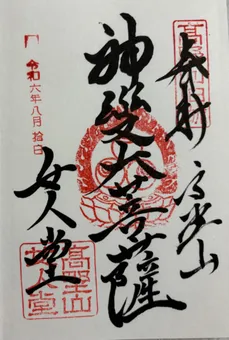 奉拜 高野山
神變大菩薩
女人堂
令和六年八月拾日
高野山
女人堂